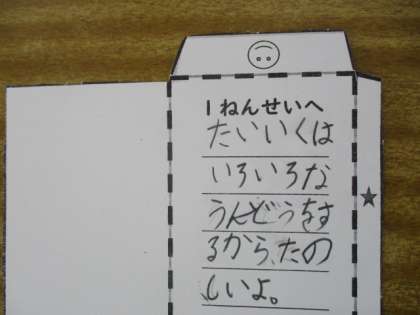 1ねんせいへ
たいいくは
いろいろな
うんどうをす
るから、たの
しいよ。